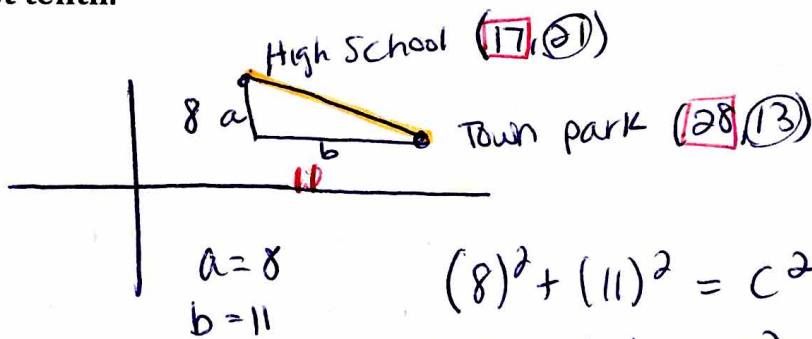 tenth.
High School (17,21)
8 a
Town park (28,13)
b
11
a=8
b=11
(8)²+(11)² = c²